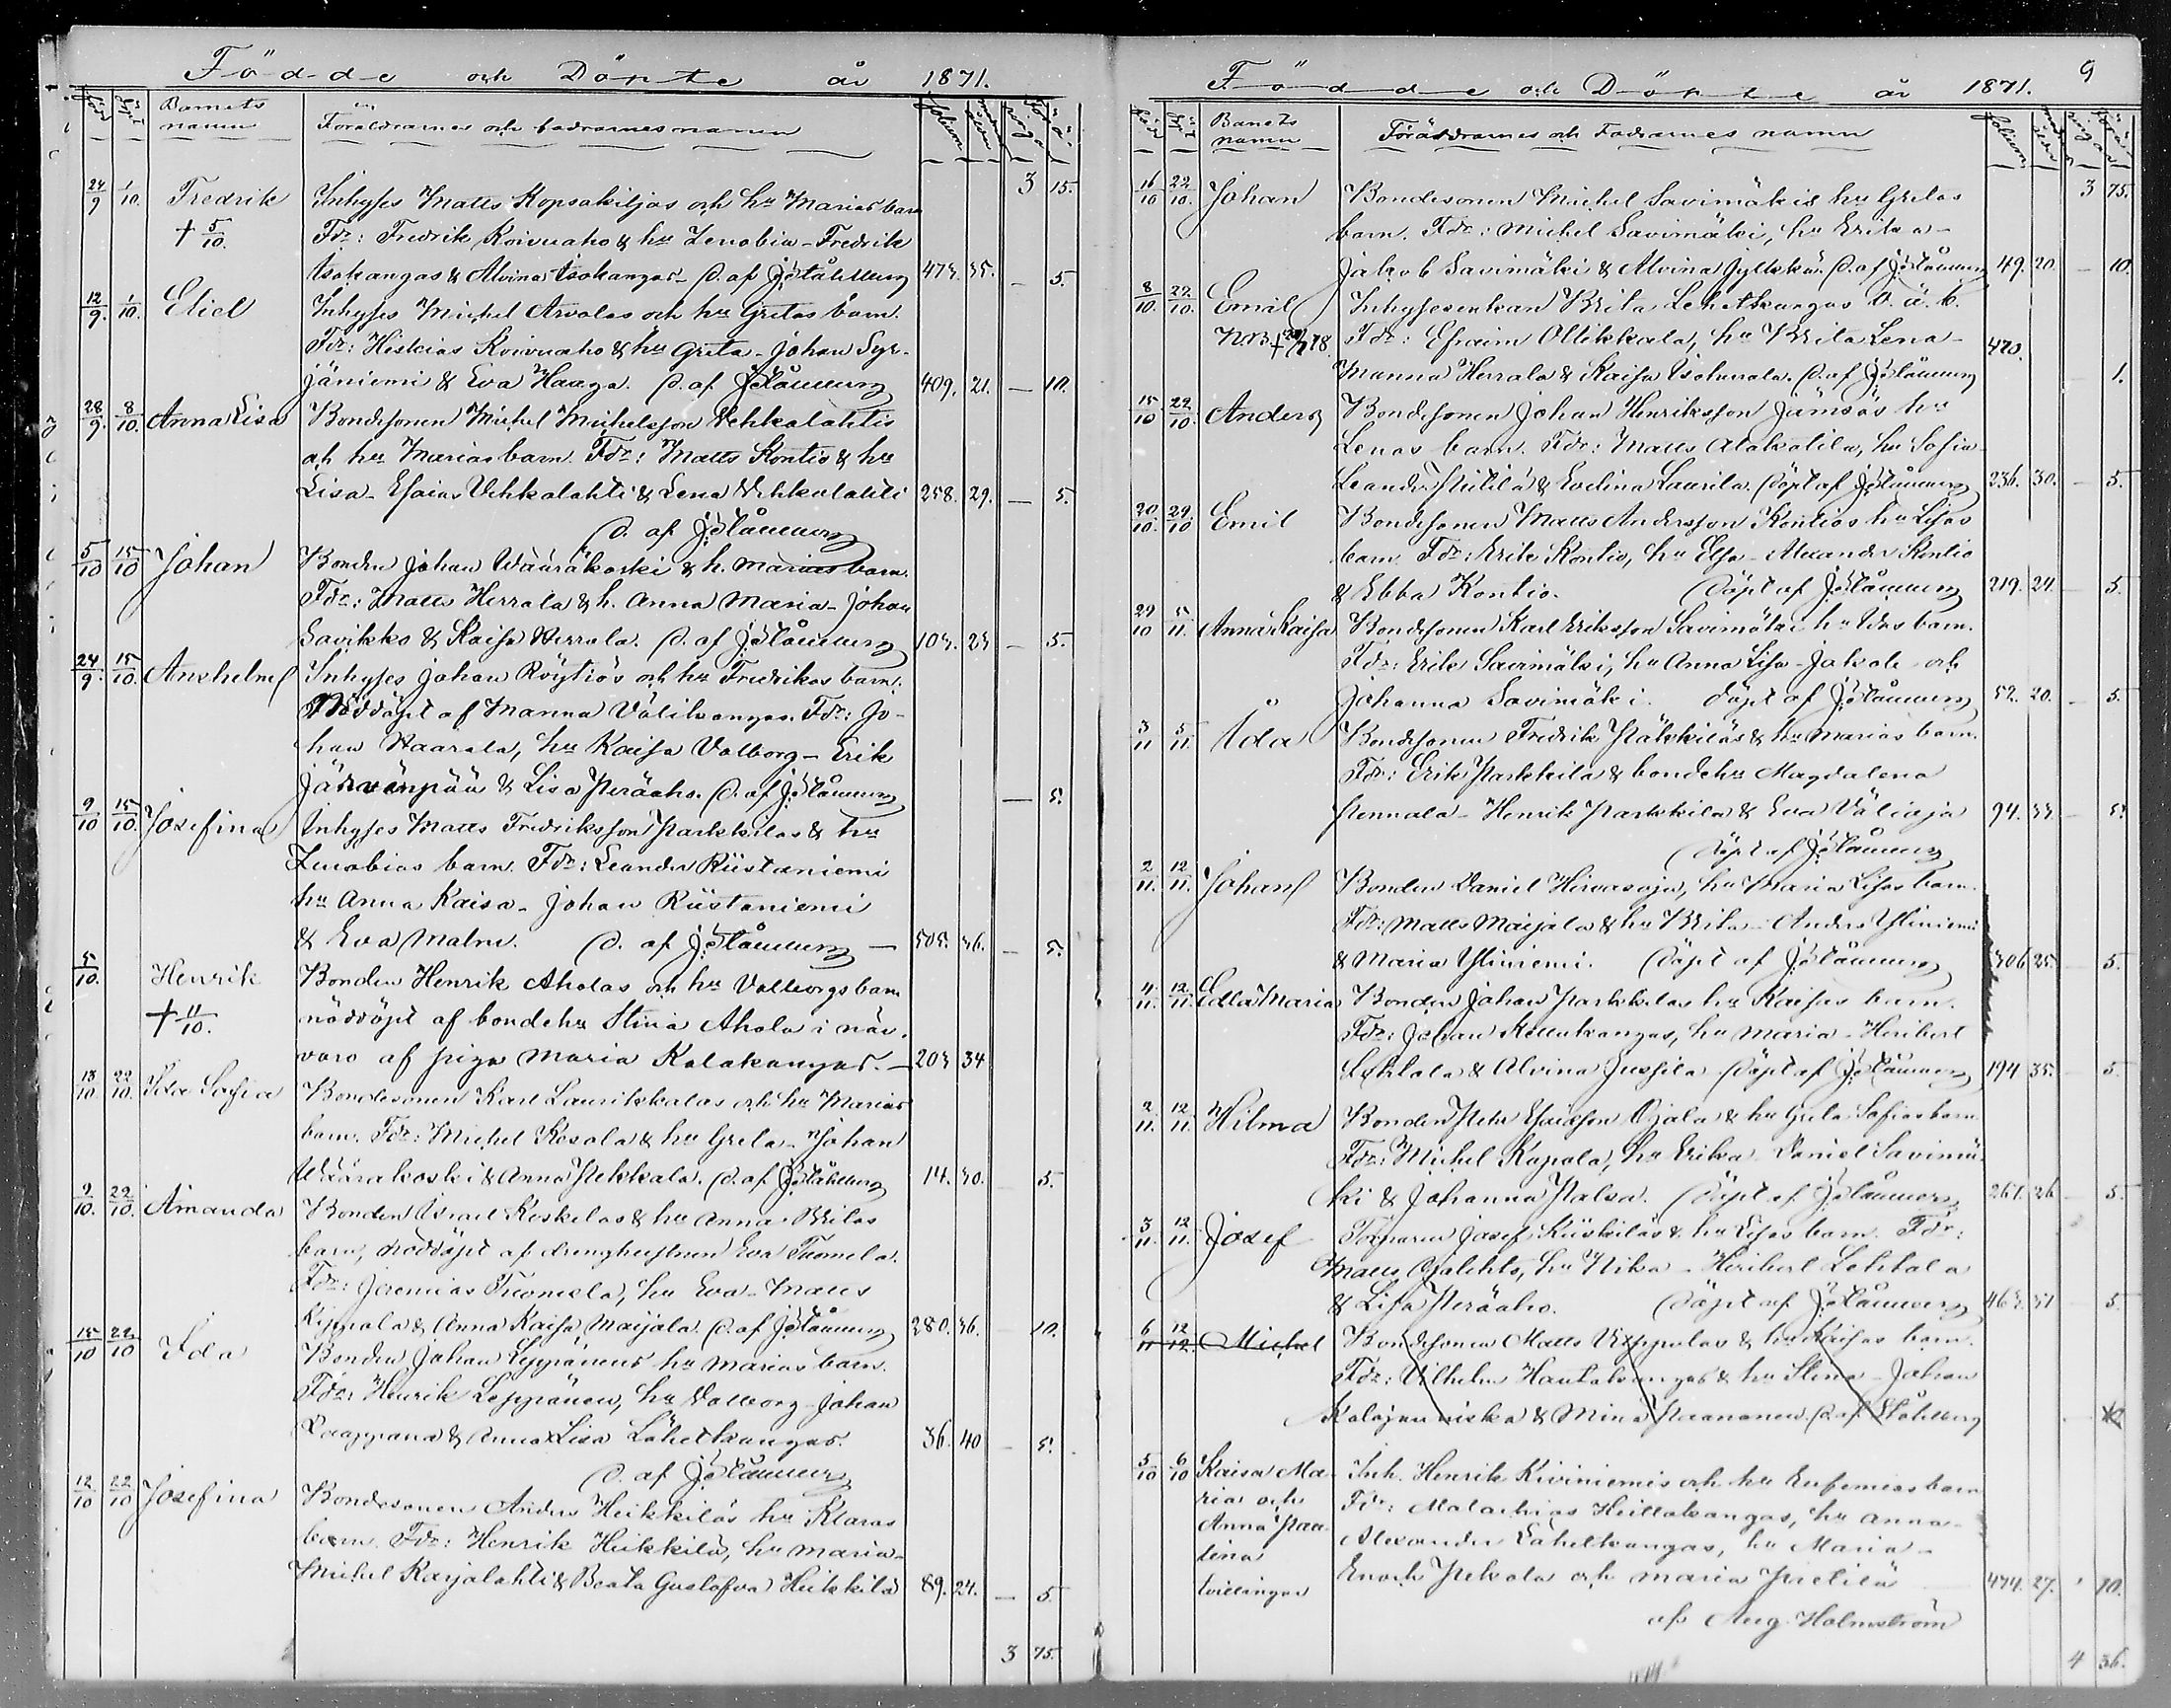 Födde och Döpte år 1871.
Barnets namn Föräldrarnes och fadrarnes namn folium
3 15.
24/9 1/10. Fredrik Inhyses Matts Kopsakiljas och hu Marias barn
† 5/10. Fdr: Fredrik Koivuaho & hu Zenobia - Fredrik
Isokangas & Alvina Isokangas - D. af J. Ståhlberg 473. 35. - 5.
12/9. 1/10. Eliel Inhyses Michel Arvolas och hu Gretas barn.
Fdr: Hiskias Koivuaho & hu Greta - Johan Syr-
jäniemi & Eva Haaga. D. af J. Ståhlberg 409. 21. - 10.
28/9. 8/10. Anna Lisa Bondesonen Michel Michelsson Vehkalahtis
och hu Marias barn. Fdr: Matts Kontio & hu
Lisa - Esaias Vehkalahti & Lena Vehkalahti 258. 29. - 5.
D. af J. Ståhlberg
5/10 15/10 Johan Bonden Johan Wääräkoski & h. Marias barn.
Fdr: Matts Herrala & h. Anna Maria - Johan
Savikko & Kaisa Herrala. D. af J. Ståhlberg 103. 23 - 5.
24/9. 15/10. Anshelm Inhyses Johan Röytiös och hu Fredrikas barn.
Nöddöpt af Manna Välikangas. Fdr: Jo-
han Haarala, hu Kaisa Valborg - Erik
Järvenpää & Lisa Peräaho. D. af J. Ståhlberg - 5.
9/10 15/10. Josefina Inhyses Matts Fredriksson Parkkilas & hu
Zenobias barn. Fdr: Leander Riistaniemi
hu Anna Kaisa - Johan Riistaniemi
& Eva Malm. D. af J. Ståhlberg - 505. 36. - 5.
5/10. Henrik Bonden Henrik Aholas och hu Valborgs barn
† 11/10. nöddöpt af bondehu Stina Ahola i när-
varo af piga Maria Kalakangas. - 203 34
13/10. 22/10. Ida Sofia Bondesonen Karl Laurikkalas och hu Marias
barn. Fdr: Michel Kosola & hu Greta - Johan
Wääräkoski & Anna Pekkala. D. af J. Ståhlberg 14. 30. 5.
9/10. 22/10. Amanda Bonden Israel Keskelas & hu Anna Britas
barn, nöddöpt af drenghustrun Eva Tuomela.
Fdr: Jeremias Tuomela, hu Eva - Matts
Kippola & Anna Kaisa Maijala. D. af J. Ståhlberg 280. 36. 10.
15/10 22/10 Ida Bonden Johan Leppänens hu Marias barn.
Fdr: Henrik Leppänen, hu Valborg - Johan
Raappana & Anna Lisa Lähetkangas. 36. 40 - 5.
D. af J. Ståhlberg
12/10 22/10 Josefina Bondesonen Anders Heikkiläs hu Klaras
barn. Fdr: Henrik Heikkilä, hu Maria -
Michel Karjalahti & Beata Gustafva Heikkilä 89. 24. - 5.
3 75.
Födde och Döpte år 1871. 9
Barnets namn Föräldrarnes och Fadrarnes namn folium
3 75.
16/10 22/10. Johan Bondesonen Michel Savimäkis hu Gretas
barn. Fdr: Michel Savimäki, hu Erika -
Jakob Savimäki & Alvina Jylkkä. D. af J. Ståhlberg 49. 20. - 10.
8/10. 22/10 Emil Inhysesenkan Brita Lehetkangas o. ä. b.
Fdr: Efraim Ollikkala, hu Brita Lena - 470.
Manna Herrala & Kaisa Isoherrala. D. af J. Ståhlberg 1.
15/10 22/10. Anders Bondesonen Johan Henriksson Jämsäs hu
Lenas barn. Fdr: Matts Alakotila, hu Sofia -
Leander Pietilä & Evelina Laurila. Döpt af J. Ståhlberg 236. 30. - 5.
20/10. 29/10 Emil Bondesonen Matts Andersson Kontios hu Lisas
barn. Fdr: Erik Kontio, hu Elsa - Alexander Kontio
& Ebba Kontio. Döpt af J. Ståhlberg 219. 24. - 5.
29/10 5/11. Anna Kaisa Bondesonen Karl Eriksson Savimäki hu Idas barn.
Fdr: Erik Savimäki, hu Anna Lisa - Jakob och
Johanna Savimäki. Döpt af J. Ståhlberg 52. 20. - 5.
3/11 5/11. Ida Bondesonen Fredrik Parkkiläs & hu Marias barn.
Fdr: Erik Parkkila & bondehu Magdalena
Pennala - Henrik Parkkila & Eva Väliaja 94. 33. - 5.
Döpt af J. Ståhlberg
2/11. 12/11. Johan Bonden Daniel Hirvasoja, hu Maria Lisas barn.
Fdr: Matts Maijala & hu Brita - Anders Yliniemi
& Maria Yliniemi. Döpt af J. Ståhlberg 306 25. - 5.
4/11. 12/11. Edla Maria Bonden Johan Parkkilas hu Kaisas barn.
Fdr: Johan Kellokangas, hu Maria - Heribert
Lehtola & Alvina Jussila Döpt af J. Ståhlberg 194 35. 5.
2/11. 12/11 Hilma Bonden Petter Esaiasson Ojala & hu Greta Sofias barn
Fdr: Michel Kapala, hu Erika Daniel Savimä-
ki & Johanna Palsa. Döpt af J. Ståhlberg 267. 26 - 5.
3/11. 12/11. Josef Torparen Josef Kiiskiläs & hu Lisas barn. Fdr:
Matts Ojalehto, hu Erika - Heribert Lehtola
& Lisa Peräaho. Döpt af J. Ståhlberg 463. 31 - 5.
6/11 12/12. Michel Bondesonen Matts Vippolas & hu Kaisas barn.
Fdr: Vilhelm Hautakangas & hu Stina - Johan
Kalajanniska & Mina Paananen. D. af Ståhlberg
5/10 6/10 Kaisa Ma- Inh. Henrik Kiviniemis och hu Eufemias barn
ria och Fdr: Malachias Heillakangas, hu Anna -
Anna Pau- Alexander Lähetkangas, hu Maria -
lina Enoch Pekola och Maria Pietilä
tvillingar 474. 27. 10.
af Aug. Holmström
4 36.